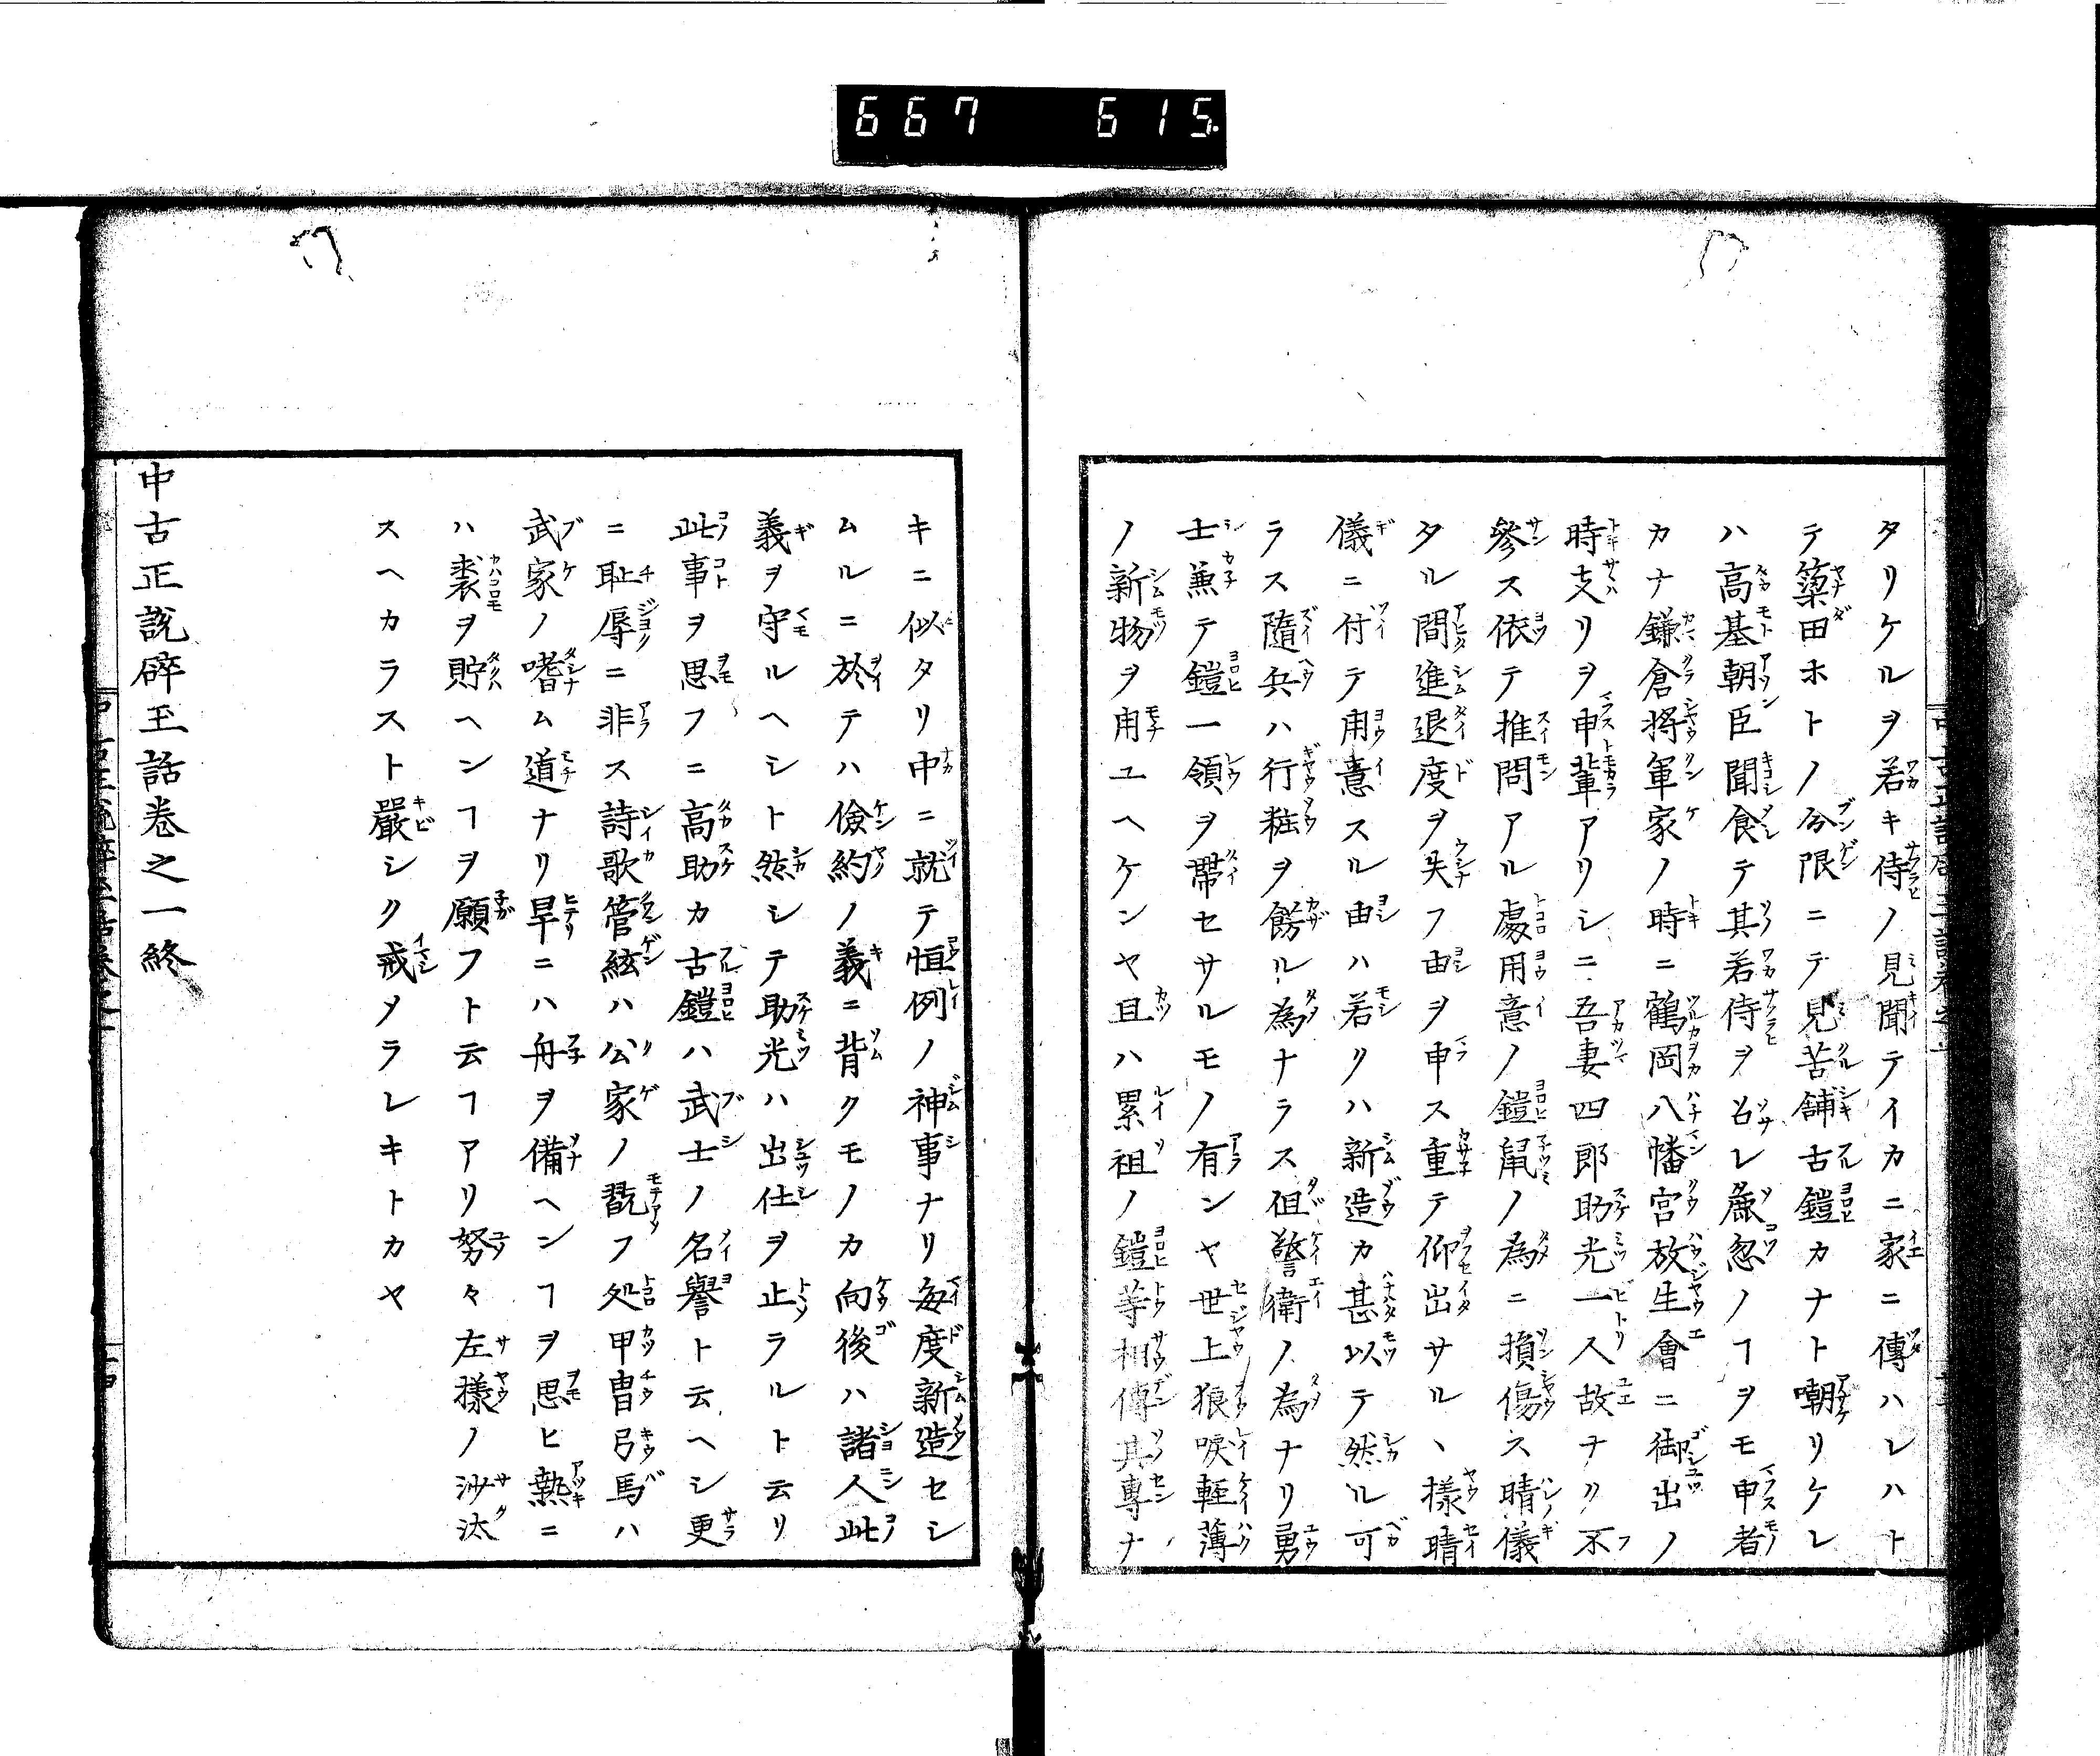 667 615
タリケルヲ若キ侍ノ見聞テイカニ家ニ傳ハレハト
テ簗田ホトノ分限ニテ見苦舗古鎧カナト嘲リケレ
ハ高基朝臣聞食テ其若侍ヲ召レ麁忽ノヿヲモ申者
カナ鎌倉將軍家ノ時ニ鶴岡八幡宮放生會ニ御出ノ
時支リヲ申輩アリシニ吾妻四郎助光一人故ナク不
參ス依テ推問アル處用意ノ鎧鼠ノ為ニ損傷ス晴儀
タル間進退度ヲ失フ由ヲ申ス重テ仰出サルヽ樣晴
儀ニ付テ用意スル由ハ若クハ新造カ甚以テ然ル可
ラス隨兵ハ行粧ヲ餝ル為ナラス伹警衛ノ為ナリ勇
士兼テ鎧一領ヲ帶セサルモノ有ンヤ世上狼唳輕薄
ノ新物ヲ用ユヘケンヤ且ハ累祖ノ鎧等相傳其專ナ
キニ似タリ中ニ就テ恒例ノ神事ナリ每度新造セシ
ムルニ於テハ儉約ノ義ニ背クモノカ向後ハ諸人此
義ヲ守ルヘシト然シテ助光ハ出仕ヲ止ラルト云リ
此事ヲ思フニ高助カ古鎧ハ武士ノ名譽ト云ヘシ更
ニ耻辱ニ非ス詩歌管絃ハ公家ノ翫フ処甲冑弓馬ハ
武家ノ嗜ム道ナリ旱ニハ舟ヲ備ヘンヿヲ思ヒ熱ニ
ハ裘ヲ貯ヘンヿヲ願フト云フヿアリ努々左樣ノ沙汰
スヘカラスト嚴シク戒メラレキトカヤ
中古正說碎玉話卷之一終